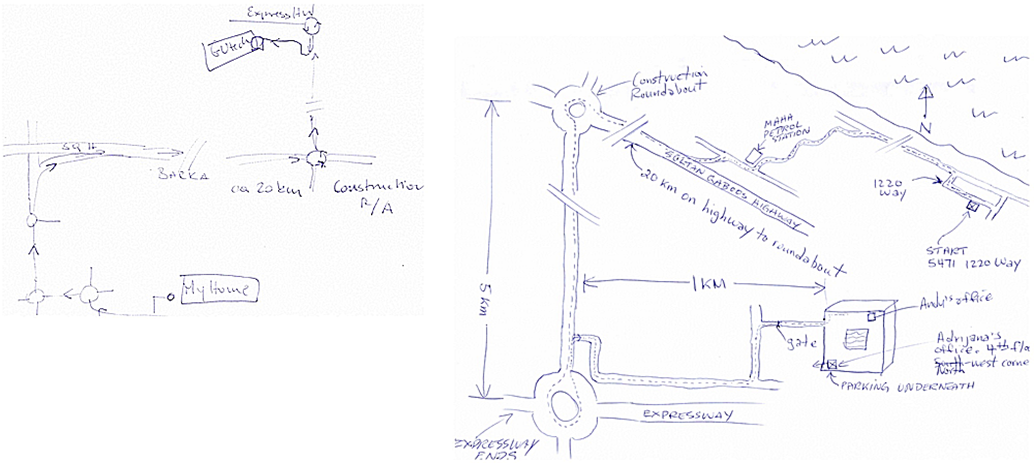 Expressway
GUtech
SQ H
BARKA
ca 20 km
Construction
R/A
My Home
Construction
Roundabout
MAHA
PETROL
STATION
N
SULTAN QABOOS HIGHWAY
20 km on highway to roundabout
1220
WAY
START
5471 1220 Way
5 km
1 KM
Andy's office
gate
Adrijana's
office. 4th fl
South-west corne
North
PARKING UNDERNEATH
EXPRESSWAY
EXPRESSWAY
ENDS